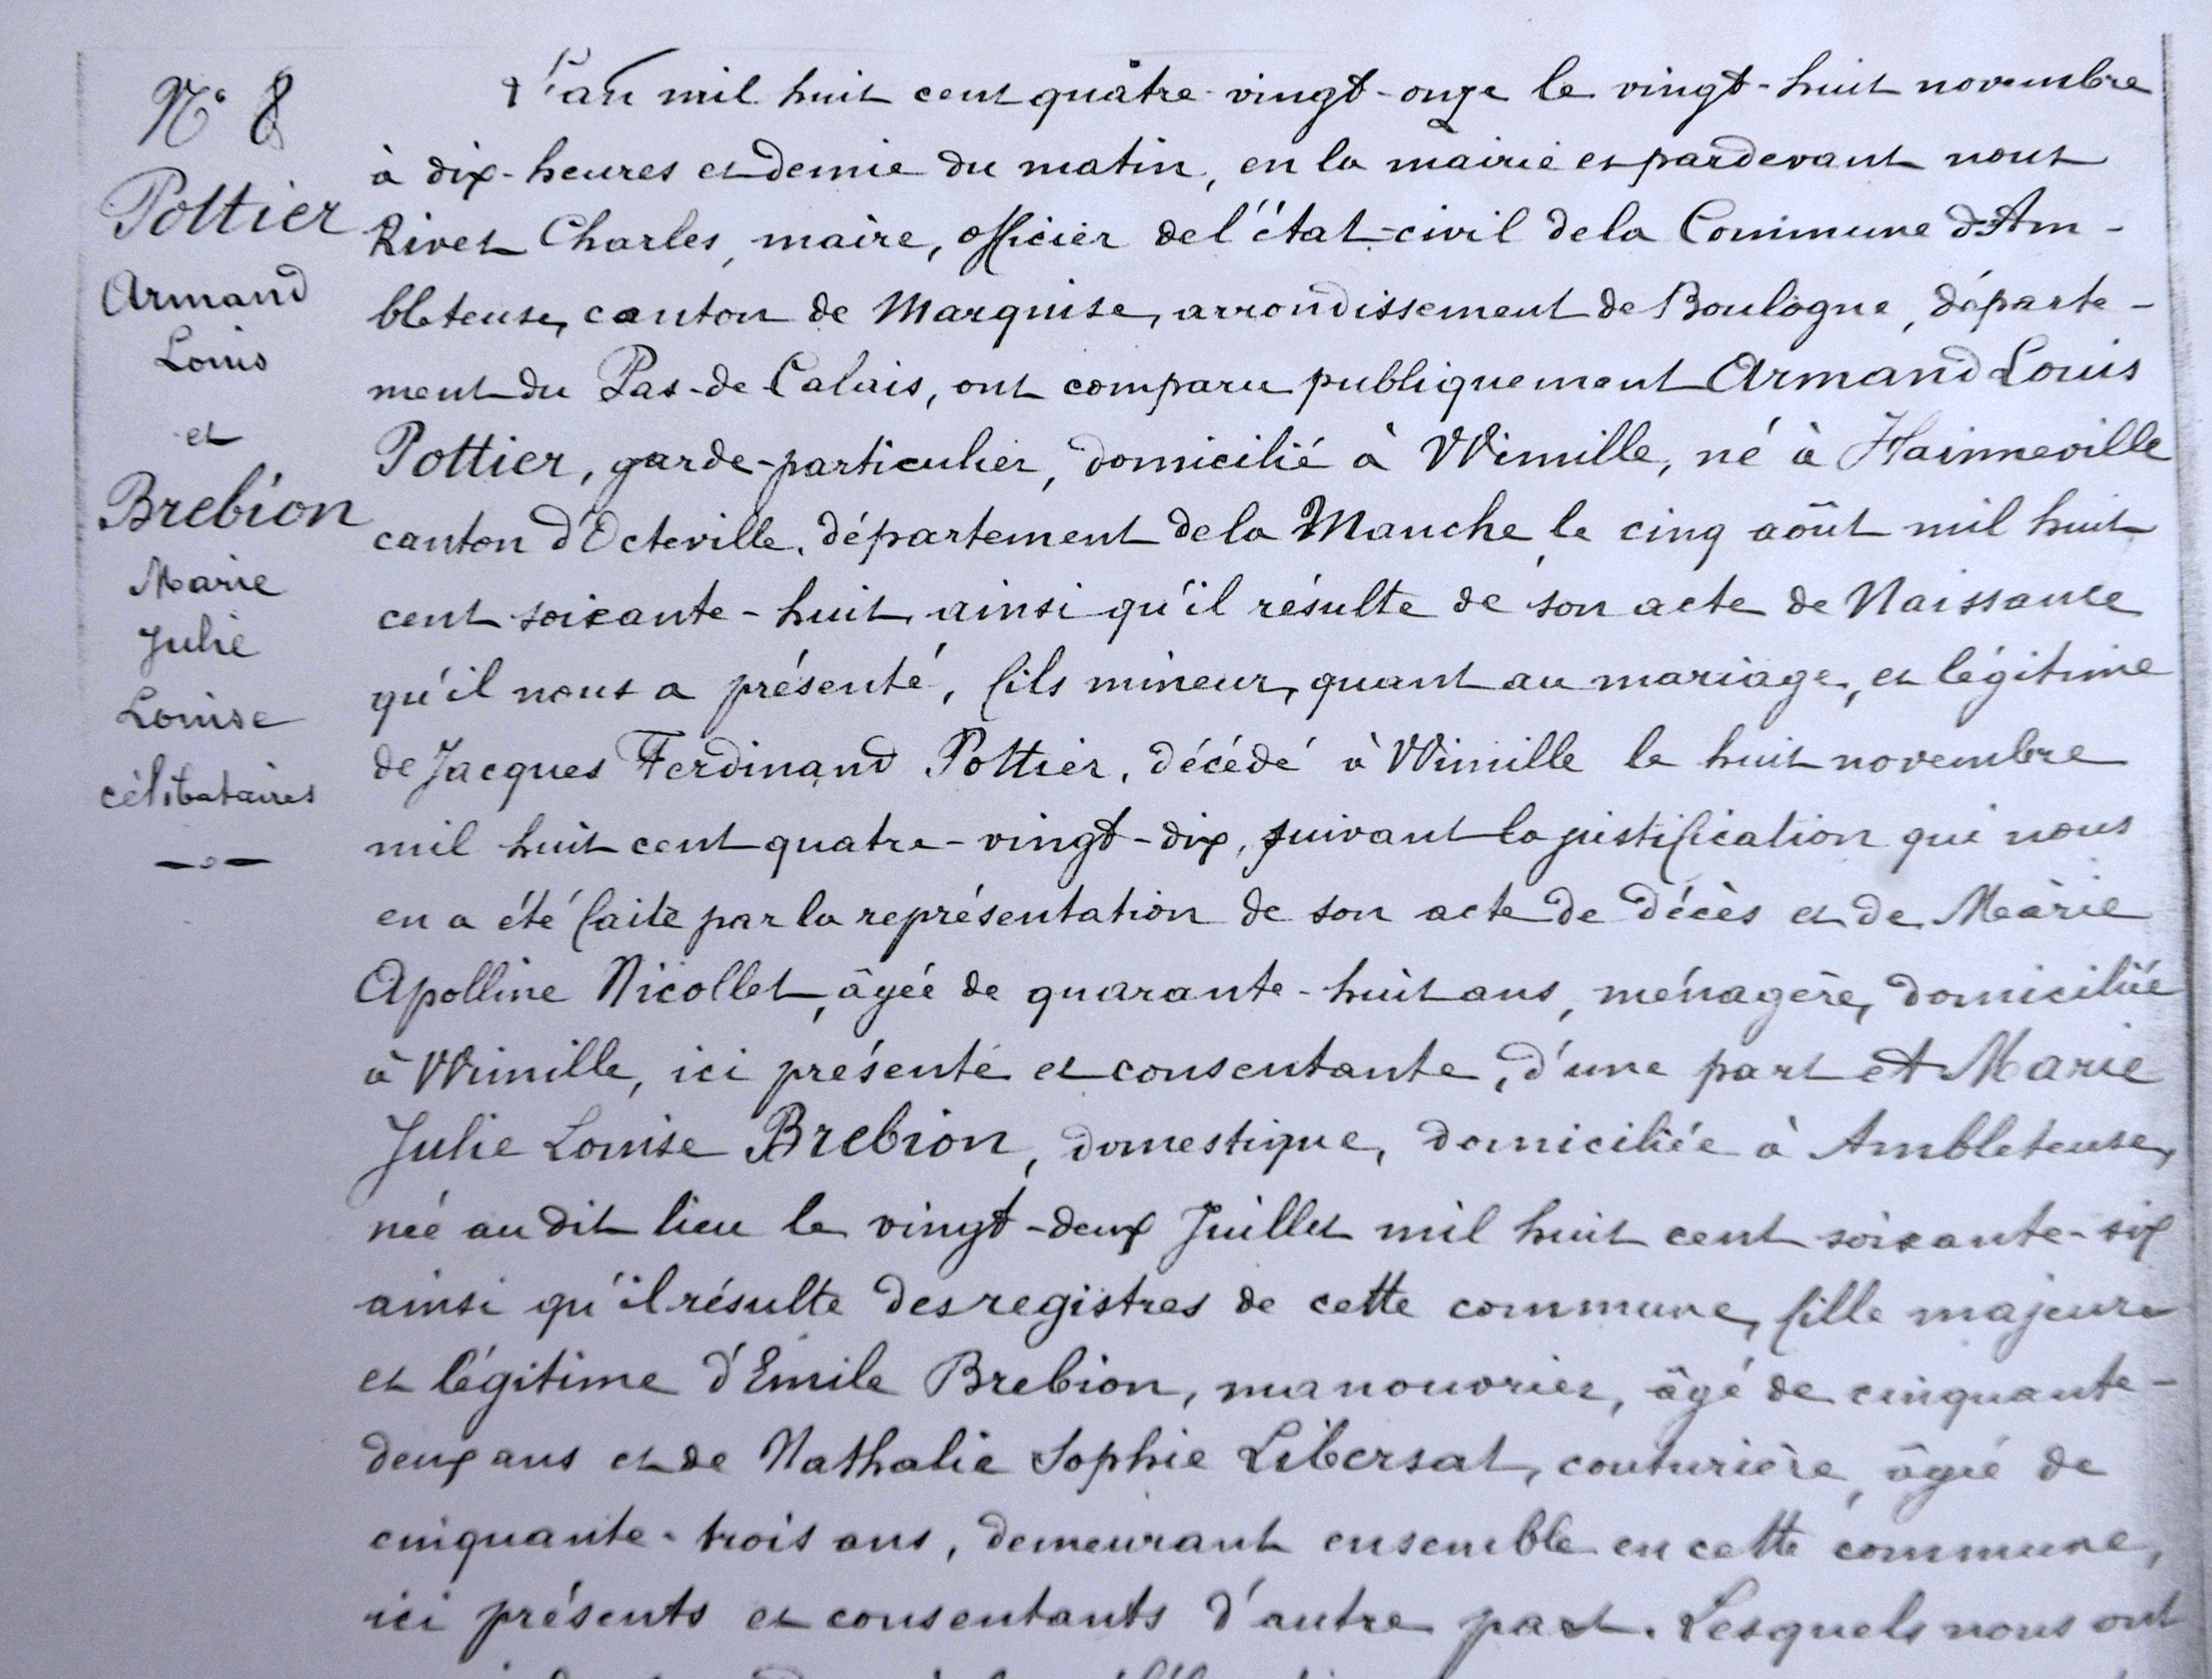 N° 8
Pottier
Armand
Louis
et
Brebion
Marie
Julie
Louise
célibataires
L'an mil huit cent quatre-vingt-onze le vingt-huit novembre
à dix-heures et demie du matin, en la mairie et pardevant nous
Rivet Charles, maire, officier de l'état-civil de la Commune d'Am-
bleteuse, canton de Marquise, arrondissement de Boulogne, départe-
ment du Pas-de-Calais, ont comparu publiquement Armand Louis
Pottier, garde-particulier, domicilié à Wimille, né à Hainneville
canton d'Octeville, département de la Manche, le cinq août mil huit
cent soixante-huit, ainsi qu'il résulte de son acte de Naissance
qu'il nous a présenté, fils mineur, quant au mariage, et légitime
de Jacques Ferdinand Pottier, décédé à Wimille le huit novembre
mil huit cent quatre-vingt-dix, suivant la justification qui nous
en a été faite par la représentation de son acte de décès et de Marie
Apolline Nicollet, âgée de quarante-huit ans, ménagère, domiciliée
à Wimille, ici présente et consentante, d'une part et Marie
Julie Louise Brebion, domestique, domiciliée à Ambleteuse,
née au dit lieu le vingt-deux Juillet mil huit cent soixante-six
ainsi qu'il résulte des registres de cette commune, fille majeure
et légitime d'Emile Brebion, manouvrier, âgé de cinquante-
deux ans et de Nathalie Sophie Libersat, couturière, âgée de
cinquante-trois ans, demeurant ensemble en cette commune,
ici présents et consentants d'autre part. Lesquels nous ont